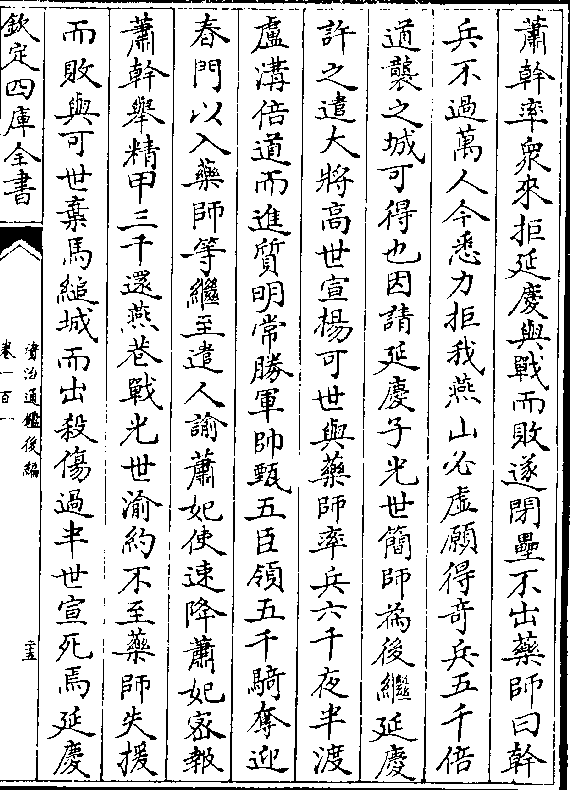 蕭幹率衆來拒延慶與戰而敗遂閉壘不出藥師曰幹
兵不過萬人今悉力拒我燕山必虛願得竒兵五千倍
道襲之城可得也因請延慶子光世簡師為後繼延慶
許之遣大將高世宣楊可世與藥師率兵六千夜半渡
盧溝倍道而進質明常勝軍帥甄五臣領五千騎奪迎
春門以入藥師等繼至遣人諭蕭妃使速降蕭妃宻報
蕭幹舉精甲三千還燕巷戰光世渝約不至藥師失援
而敗與可世棄馬縋城而出殺傷過半世宣死焉延慶
欽定四庫全書
資治通鑑後編
卷一百一
二十五